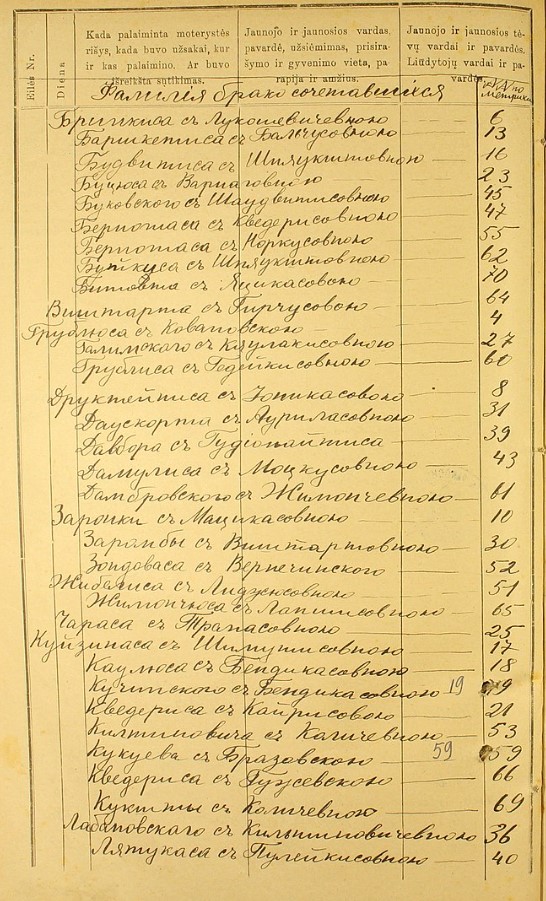 Eilės Nr.
Diena
Kada palaiminta moterystės
rišys, kada buvo užsakai, kur
ir kas palaimino. Ar buvo
išreikšta sutikimas.
Jaunojo ir jaunosios vardas,
pavardė, užsiėmimas, prisira-
šymo ir gyvenimo vieta, pa-
rapija ir amžius.
Jaunojo ir jaunosios tė-
vų vardai ir pavardės.
Liudytojų vardai ir pa-
vardės.
Фамилія бракосочетавшихся №№ по метрикѣ
Бринкиса съ Лукошевичевною 6
Баршкетиса съ Бальчусовною 13
Будвитиса съ Шпяукштовною 16
Буцюса съ Варпаговною 23
Буковского съ Шаудвитисовною 45
Бернотаса съ Кведерисовною 47
Бернотаса съ Норкусовною 55
Буткуса съ Шпяукштовною 62
Битовта съ Яцикасовою 70
Виштарта съ Гирчусовою 64
Грублюса съ Ковановскою 4
Галимского съ Каулакисовною 27
Грублиса съ Гедейкисовною 60
Друктейниса съ Юникасовою 8
Даускорта съ Ауримасовною 31
Давбора съ Гудіонайтиса 39
Дамулиса съ Моцкусовною 43
Дамбровского съ Жимончевною 61
Заронки съ Мацикасовною 10
Зарамбы съ Виштартовною 30
Зондоваса съ Верпечинского 52
Жибаиса съ Лидзюсовною 51
Жимончюса съ Лапинсовною 65
Чараса съ Трапасовною 25
Куйзинаса съ Шимутисовною 17
Каулюса съ Бендикасовною 18
Кучинского съ Бендикасовною 19 19
Кведериса съ Кайрисовою 21
Килтиновича съ Каличевною 53
Кукуева съ Бразовскою 59 59
Кведериса съ Гужевскою 66
Кукшты съ Каличевною 69
Лабановскаго съ Кильтиновичевною 36
Лятукаса съ Пулейкисовною 40